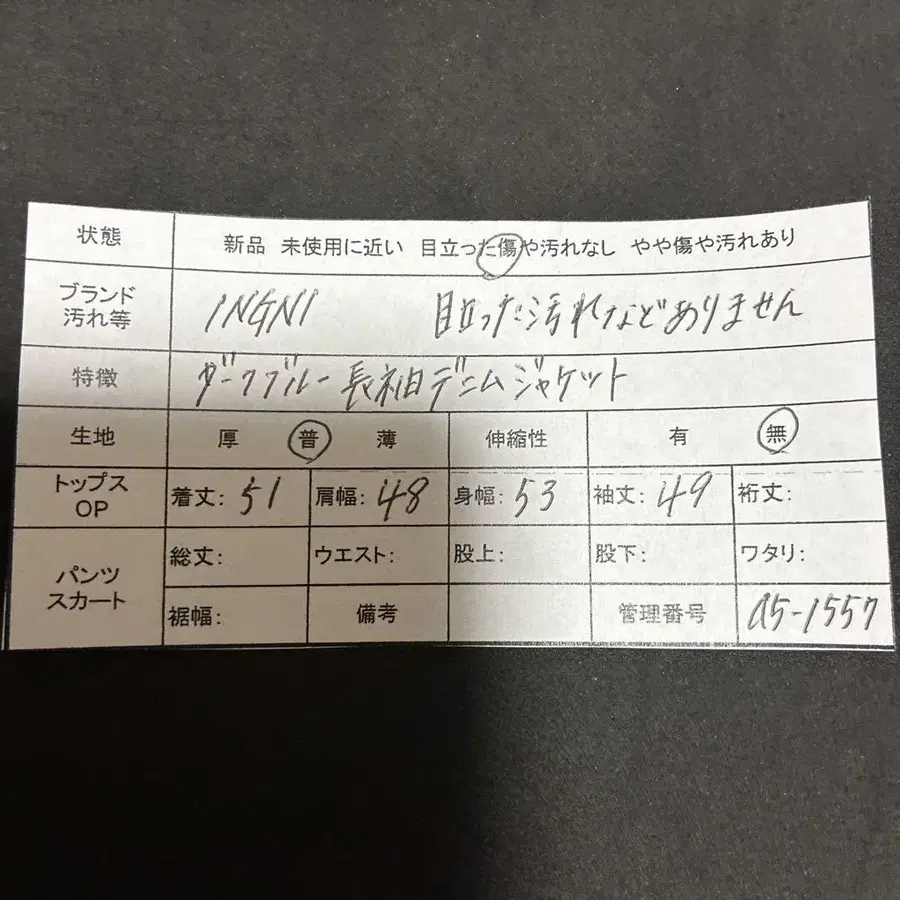 状態 新品 未使用に近い 目立った傷や汚れなし やや傷や汚れあり
ブランド
汚れ等 INGNI 目立った汚れなどありません
特徴 ダークブルー長袖デニムジャケット
生地 厚 普 薄 伸縮性 有 無
トップス
OP 着丈: 51 肩幅: 48 身幅: 53 袖丈: 49 裄丈:
パンツ
スカート 総丈: ウエスト: 股上: 股下: ワタリ:
裾幅: 備考 管理番号 a5-1557